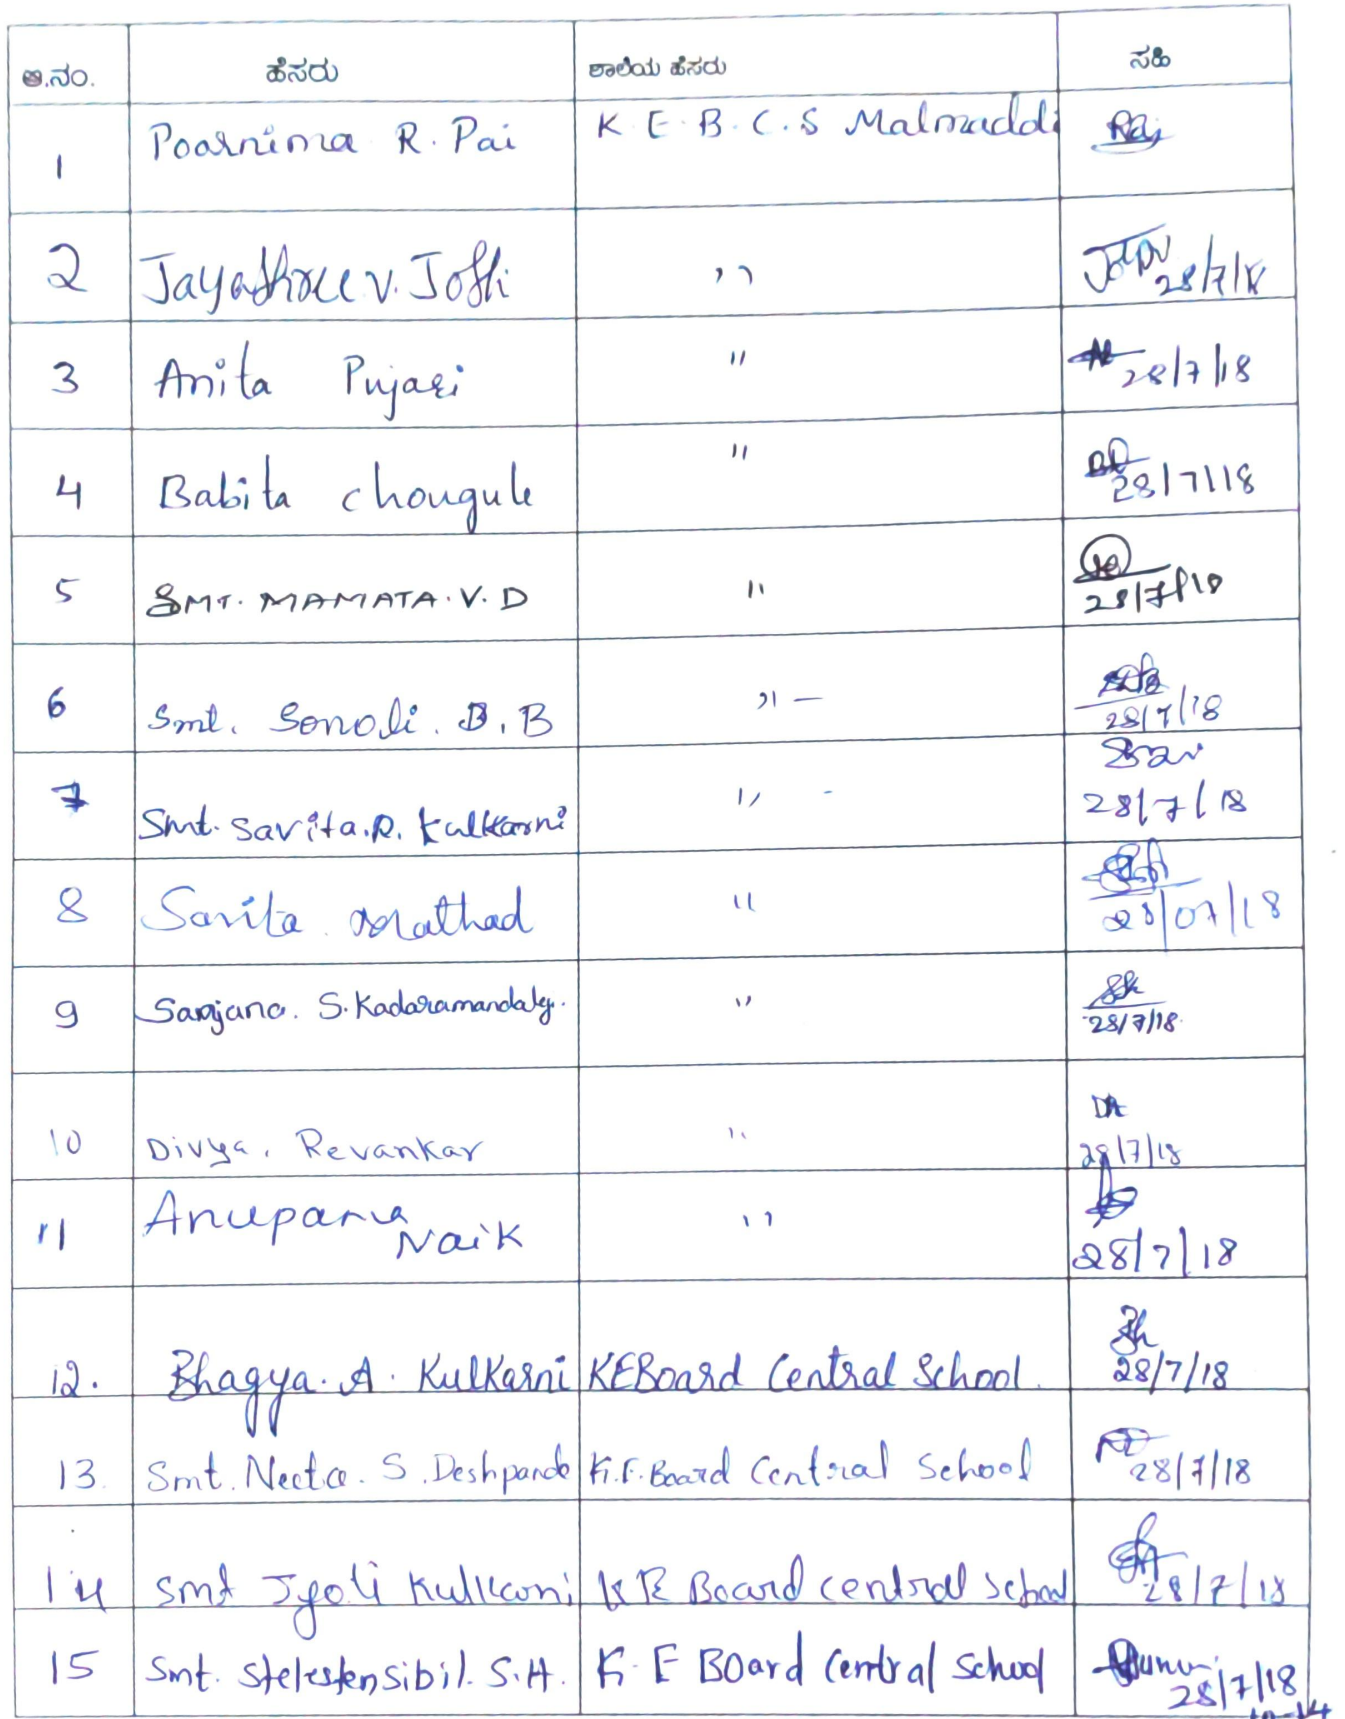 ಅ.ನಂ. ಹೆಸರು ಶಾಲೆಯ ಹೆಸರು ಸಹಿ
1 Poornima R. Pai K.E.B.C.S Malmaddi
2 Jayashree v. Joshi ,, 28/7/18
3 Anita Pujari " 28/7/18
4 Babita chougule " 28/7/18
5 SMT. MAMATA.V.D " 28/7/18
6 Smt. Sonoli. B.B " — 28/7/18
7 Smt. Savita.R. Kulkarni " - 28/7/18
8 Savita Mathad " 28/07/18
9 Sanjana. S. Kadaramandalgi. " 28/7/18
10 Divya. Revankar " 28/7/18
11 Anupama Naik " 28/7/18
12. Bhagya. A. Kulkarni KEBoard Central School. 28/7/18
13. Smt. Neeta. S. Deshpande K.E. Board Central School 28/7/18
14 Smt Jyoti Kulkarni K E Board central School 28/7/18
15 Smt. S.H. K.E Board Central School 28/7/18